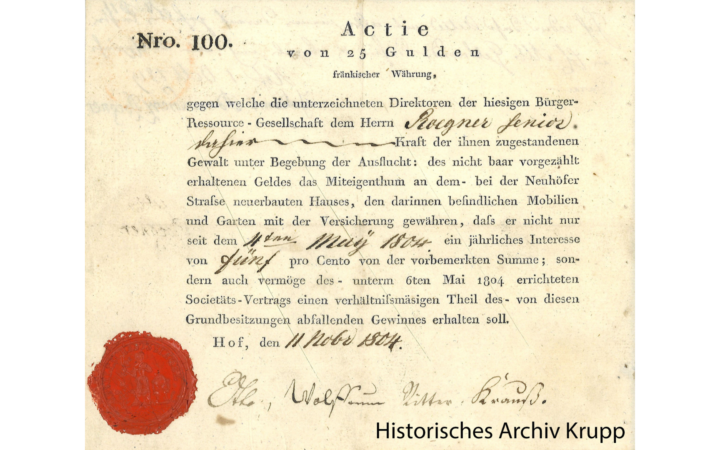 Nro. 100.
Actie
von 25 Gulden
fränkischer Währung,
gegen welche die unterzeichneten Direktoren der hiesigen Bürger-
Ressource-Gesellschaft dem Herrn Roegner Senior.
dahier Kraft der ihnen zugestandenen
Gewalt unter Begebung der Ausflucht: des nicht baar vorgezählt
erhaltenen Geldes das Miteigenthum an dem- bei der Neuhöfer
Strafse neuerbauten Hauses, den darinnen befindlichen Mobilien
und Garten mit der Versicherung gewähren, dafs er nicht nur
seit dem 4ten May 1804. ein jährliches Interesse
von fünf pro Cento von der vorbemerkten Summe; son-
dern auch vermöge des- unterm 6ten Mai 1804 errichteten
Societäts-Vertrags einen verhältnifsmäsigen Theil des- von diesen
Grundbesitzungen abfallenden Gewinnes erhalten soll.
Hof, den 11 Nobr 1804.
Ritter. Krauß.
Historisches Archiv Krupp